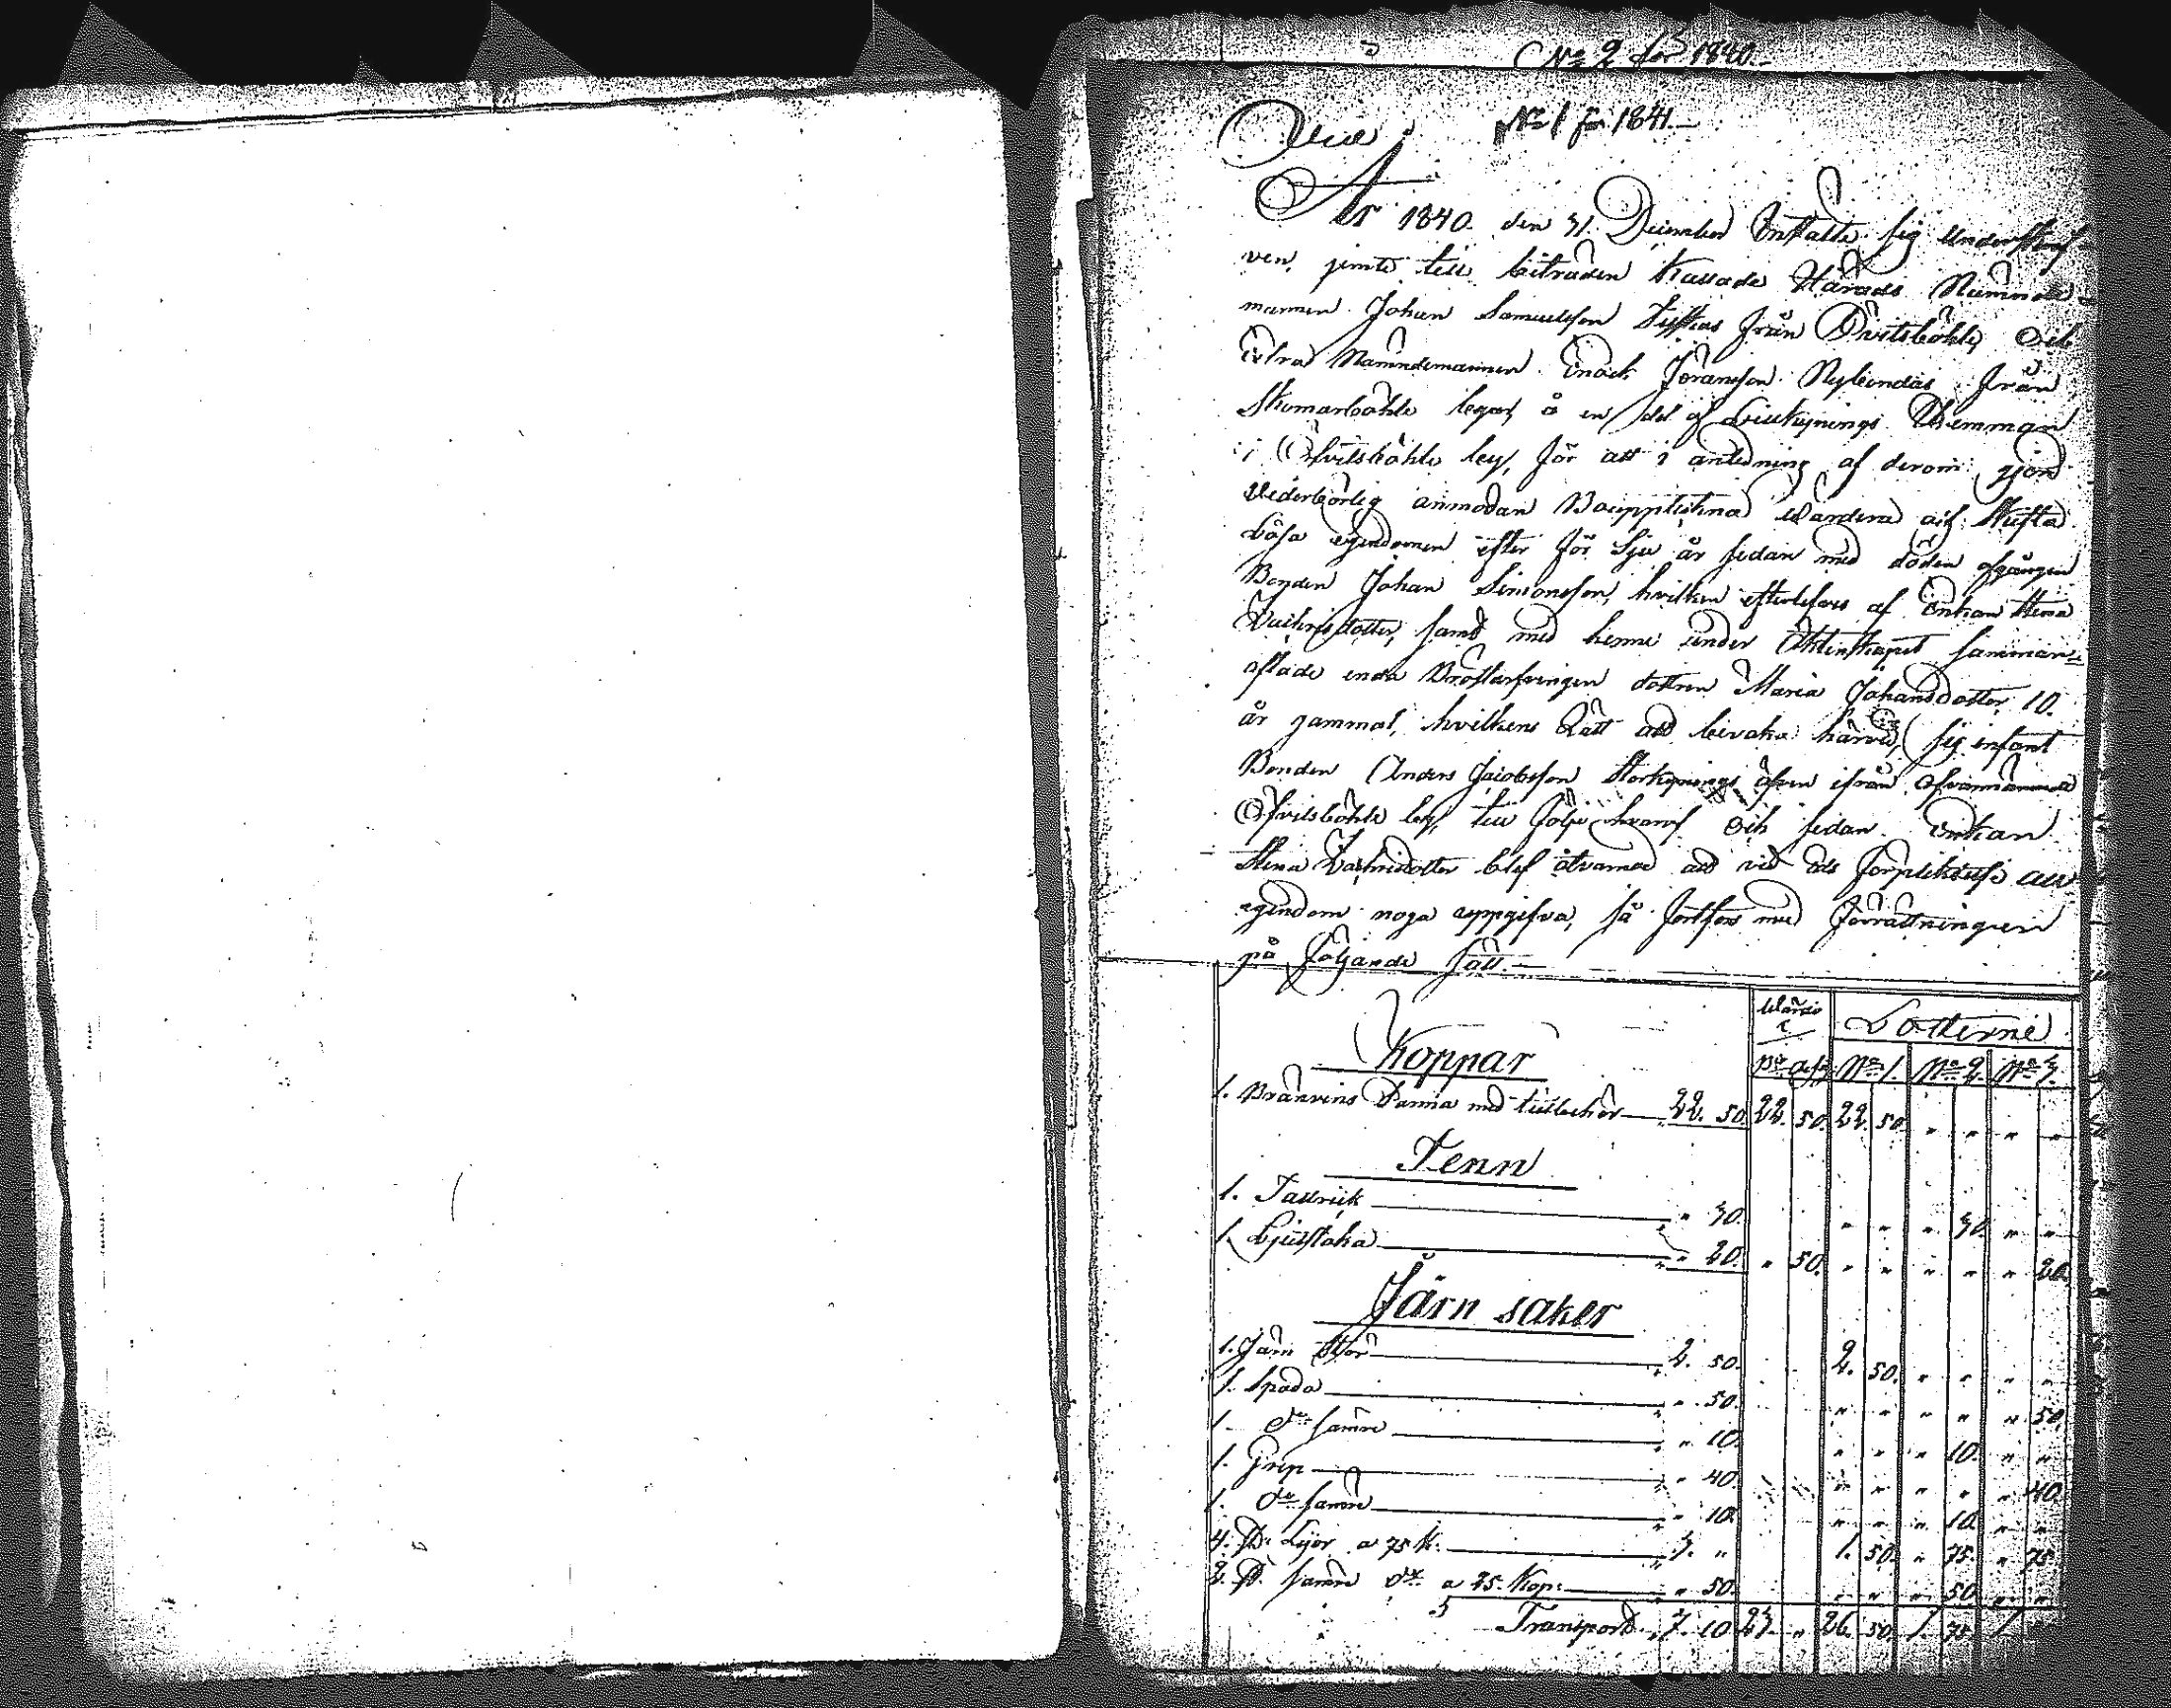 No 2 för 1840.
No 1 för 1841.
År 1840. den 31 December Instälte sig Underskref
ven, jemte till biträden Kallade Härads Nämnde
mannen Johan Samuelsson från Öfvitsböhle, Och
Extra Nämndemannen Enock Göransson Nybondas från
Skomarböhle byar, å en del af Lillkynings Hemman
i Öfvitsböhle by, för att i anledning af derom gjord
Vederbörlig anmodan Boupptekna Värdera och Skifta
Lösa egendomen efter för Sju år sedan med döden afgången
Bonden Johan Simonsson, hvilken efterlefves af Enkan Stina
dotter, samt med henne under Äktenskapet samman-
aflade enda Bröstarfvingen dottren Maria Johansdotter 10.
år gammal, hvilkens Rätt att bevaka härvid, sig infant
Bonden Anders Jacobsson Storkynings äfven ifrån ofvannämnde
Öfvitsböhle by, till följe hvaraf Och sedan Enkan
Stina blef åtvarnad att vid eds förpliktelse all
egendom noga uppgifva, så fortfors med förrättningen
på följande sätt.
Värde Lotterne
No 1. No 2. No 3.
Koppar
1. Bränvins Panna med tillbehör 22. 50. 22. 50. 22. 50. " " " "
Tenn
1. Tallrick " 30. " " " 30. " "
1. Ljusstaka " 20. " 50. " " " " " 20.
Järn saker
1. Järn Stör 2. 50. 2. 50. " " " "
1. Spada " 50. " " " " " 50.
1. do sämre " 10. " " " 10. " "
1. Grep " 40. " " " " " 40.
1. do sämre " 10. " " " 10. " "
4. Lijor a 75 K. 3. " 1. 50. " 75. " 75.
2. sämre do a 25. Kop: " 50. " " " 50. " "
Transport 7. 10 23. " 26. 50. 1. 75. 1.